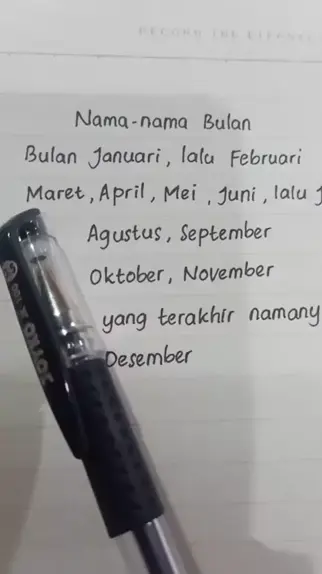 RECORD THE
Nama-nama Bulan
Bulan Januari, lalu Februari
Maret, April, Mei, Juni, lalu J
Agustus, September
Oktober, November
yang terakhir namany
Desember
JOYKO